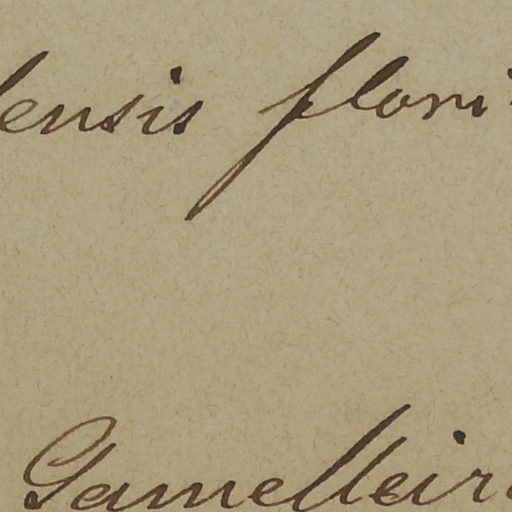 densis flori
Gamelleir